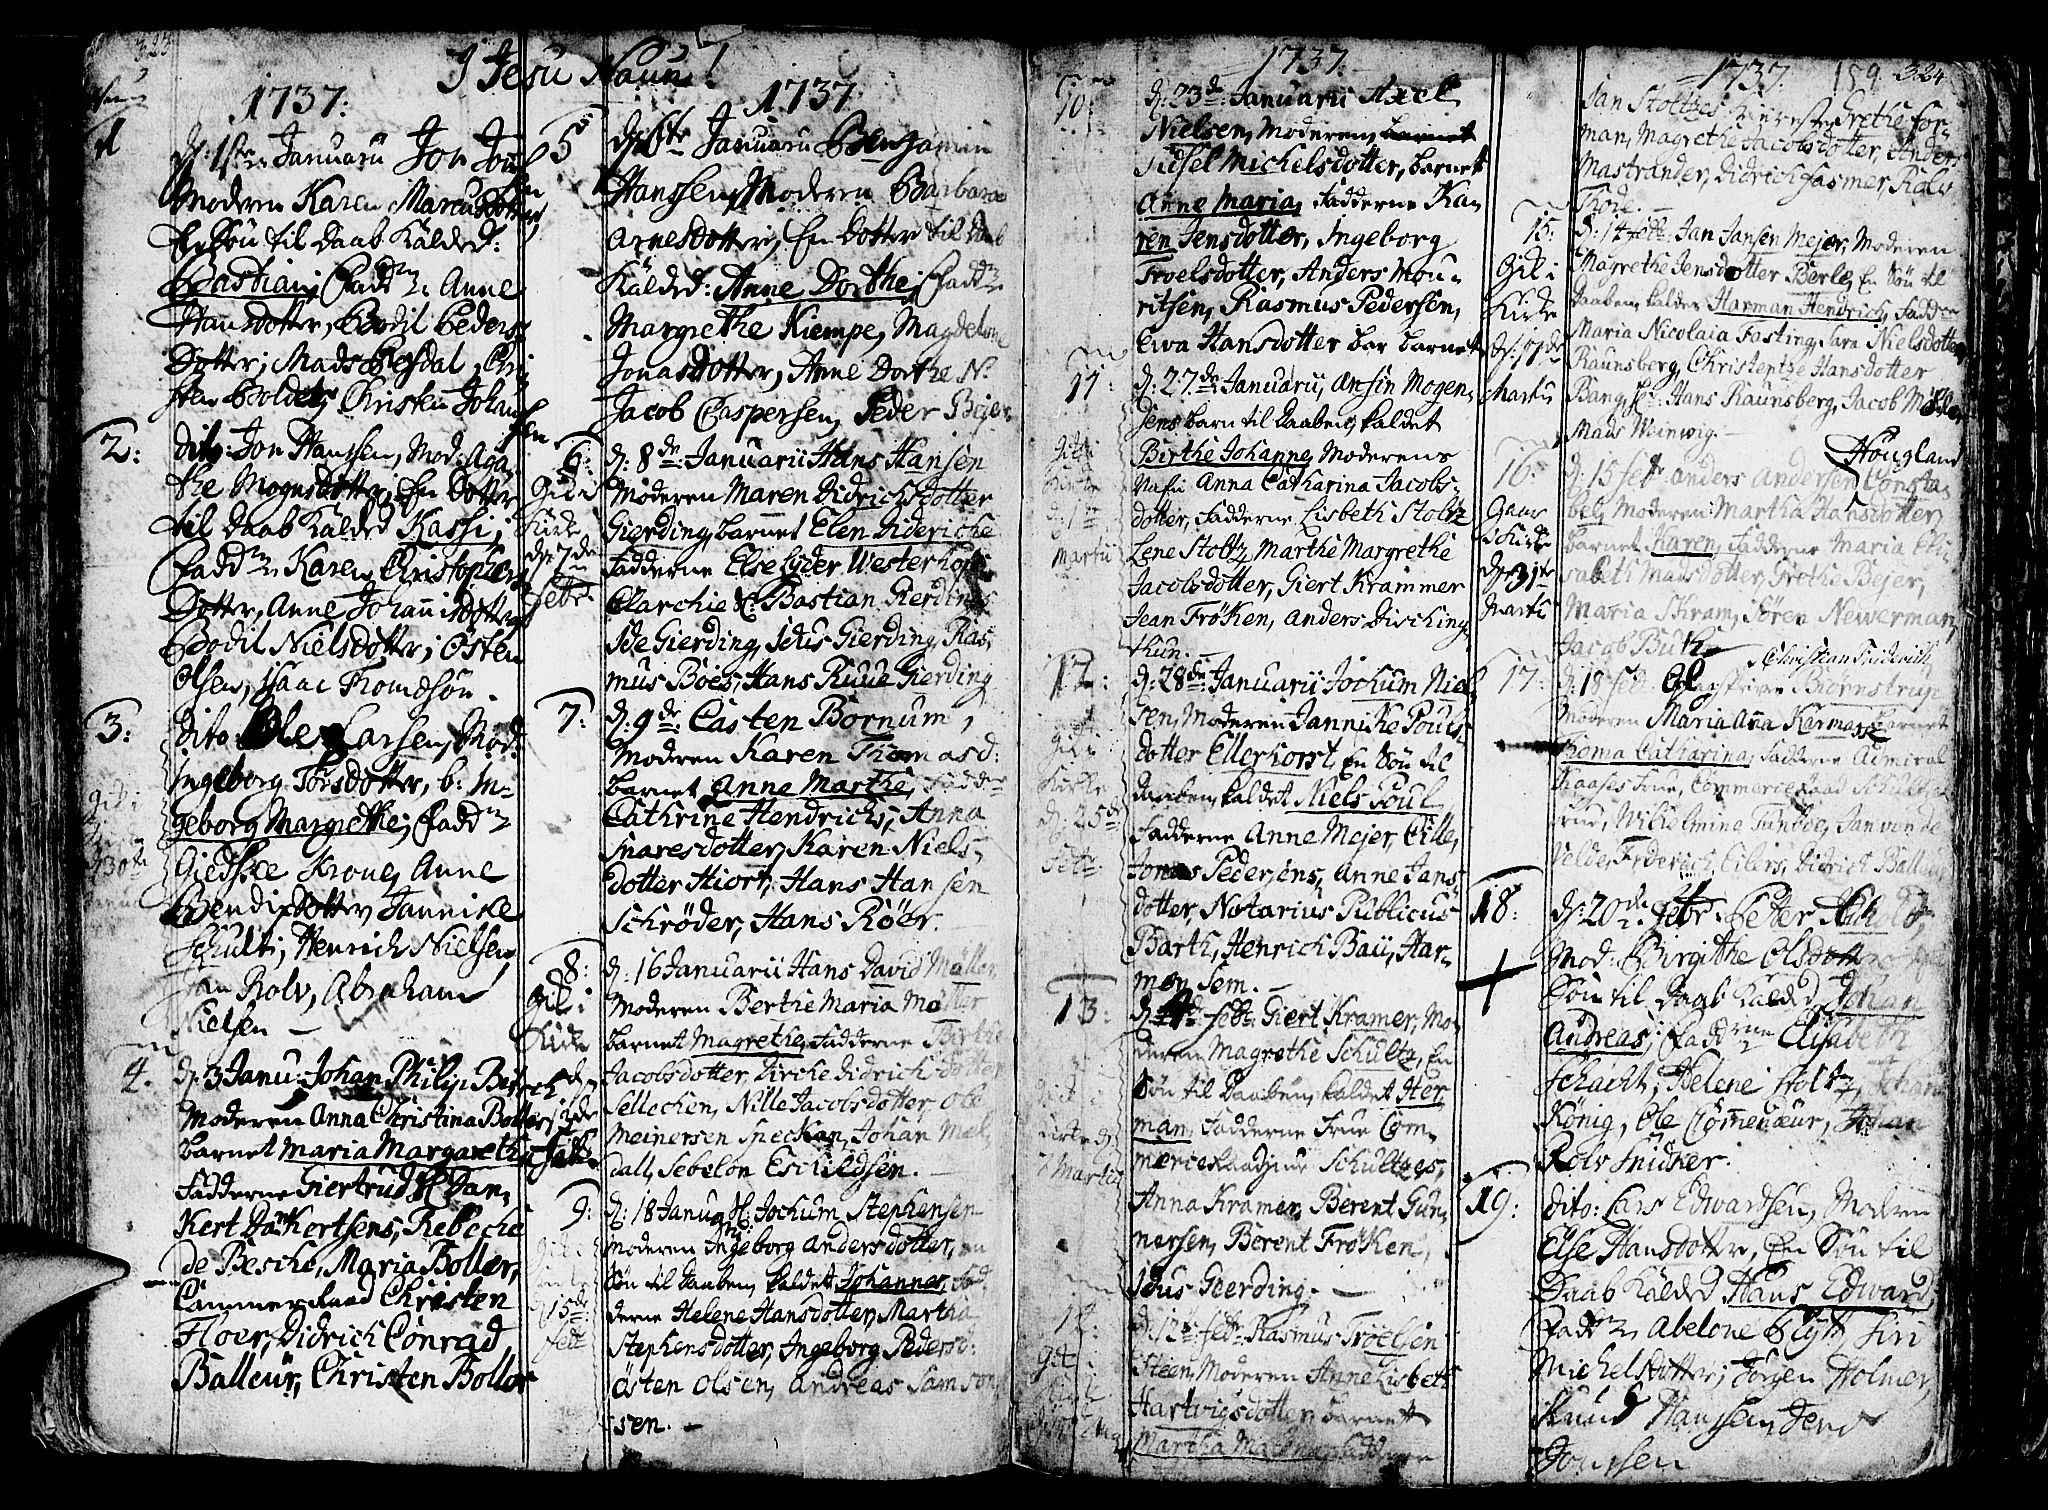 323
I Jesu Naun!
1737.
1
d: 1ste Januarii Jon Jon
sen
Moderen Karen Marcusdotter,
En Søn til Daab kalded:
Bastian; Fadd: Anne
Hansdotter, Bodil Peders
dotter; Mads
Christen Johan
sen
2:
dito: Jon Hanssen, Mod: Aga
the Mognsdotter, En dotter
til Daab kalded Kassi;
Fadd: Karen Christophers
dotter, Anne Johannisdotter
Bodil Nielsdotter; Østen
Olsen, Isaac Tromdsøn.
3:
dito Ole Larsen, Mod:
Ingeborg Torsdotter, b: In-
geborg Margrethe; Fadd:
Giedske Krone, Anne
Bendixdotter, Jannike
Schult; Henrich Nielsen,
Jan Rolv, Abraham
Nielsen —
4.
d: 3 Janu: Johan Philip
Moderen Anna Christina Boller,
barnet Maria Margaretha
Fadderne Giertrud Sl: Dan-
kert Dankertsens, Rebeche
de Besche, Maria Boller,
Cammerraad Christen
Floer, Didrich Conrad
Balleur, Christen Boller
1737
5
d: 6te Januarii Benjamin
Hanssen, Moderen Barbara
Arnesdotter, En dotter til daab
kalded: Anne Dorthe; Fadd:
Margrethe Kiempe, Magdelone
Jonasdotter, Anne Dorthe N.
Jacob Caspersen, Peder Beier
6:
Gik i
Kirke
d: 7de
Febr:
d: 8de Januarii Hans Hansen
Moderen Maren Didrichsdotter
Gierding, barnet Elen Dideriche
Fadderne Else Lyder Westerhof
Clarchie Sl: Bastian Gerdings
Ide Gierding, Idus Gierding, Ras,
mus Boes, Hans Ruue Gierding
7:
d: 9de Casten Bornum,
Moderen Karen Thomasd:
barnet Anne Marthe, Fadderne
Cathrine Hendrichs, Anna
Snaresdotter, Karen Niels-
dotter Hiort, Hans Hansen
Schrøder, Hans Røer.
8:
Gik i
Kirke
d: 16 Januarii Hans David Møller
Moderen Berthe Maria Møller
barnet Magrethe, Fadderne Birthe
Jacobsdotter, Dirche Didrichsdotter
Sellechen, Nille Jacobsdotter, Ole
Meinersen Speckan, Johan Mel,
dall, Sebelon Eschildsen. —
9:
15de
Febr
d: 18 Janu Sl: Jochum Stephensen
Moderen Ingeborg Andersdotter, en
Søn til Daaben, kaldet Johannes, Fad,
derne Helene Hansdotter, Martha
Stephensdotter, Ingeborg Pedersd:
Østen Olsen, Andreas Samson,
sen. —
1737
10:
d: 23de Januarii Axel
Nielsen, Moderen, barnet
Sidsel Michelsdotter, barnet
Anne Maria, Fadderne Ka
ren Jensdotter, Ingeborg
Troelsdotter, Anders Mou-
ritsen, Rasmus Pedersen,
Ewa Hansdotter bar barnet
11:
Gik i
Kirke
d: 1ste
Martii
d: 27de Januarii, Ansin Mogen,
sens barn til Daaben, kaldet
Birthe Johanne, Moderens
Nafn Anna Catharina Jacobs-
dotter, Fadderne Lisbeth Stoltz
Lene Stoltz, Marthe Margrethe
Jacobsdotter, Giert Krammer
Jean Frøken, Anders Disching,
thun. —
12:
Gik i
Kirke
d: 25de
Febr:
d: 28de Januarii Jochum Niel
sen, Moderen Jannike Pouls
dotter Ellerhorst, En Søn til
Daaben, kaldet Niels Poul,
Fadderne Anne Mejer, Cille,
Jonas Pedersens, Anne Jans-
dotter, Notarius Publicus
Barth, Henrich Bau, Har-
men Sem. —
13:
Kirke d:
7 Martii
Febr: Giert Kramer, Mo
deren Magrethe Schultz, En
Søn til Daaben, kaldet Her
man, Fadderne Frue Com,
merceraadinde Schultzes,
Anna Kramer, Berent Gun,
nersen, Berent Frøken,
Idus Geerding. —
14:
Gik i
d: 12te Febr Rasmus Troelsen
Steen, Moderen Anne Lisbeth
Hartvigsdotter, barnet
Martha Malene, Fadderne
1737.
159. 324
Jan Stoltzes Grethe For-
man, Magrethe Jacobsdotter, Anders
Mastrander, Didrich Fasmer, Rolv
Thode. —
15:
Gik i
Kirke
Martii
d: 14 Febr: Jan Jansen Mejer, Moderen
Magrethe Jensdotter Berle, En Søn til
Daaben, kaldet Harman Hendrich, Fadderne
Maria Nicolaia Fasting, Sara Nielsdotter,
Raunsberg, Christentze Hansdotter
Bang, Sr: Hans Raunsberg, Jacob Miller,
Mads Meinwig. —
Hougland
16:
Gaar
i Kirke
d: 31te
Martii
d: 15 Febr Anders Andersen Consta,
bel, Moderen Martha Hansdotter,
barnet Karen, Fadderne Maria Eli
sabeth Madsdotter, Grethe Bejer,
Maria Skram, Søren Newerman,
Jacob Buth
Christian Friderich
17:
d: 18 Feb: Biørnstrup
Moderen Maria Ana Karmark barnet
Thoma Catharina, Fadderne Admiral
Kaases Frue, Commerceraad Schultzes
Frue, Wilhelmine Tunboe, Jan von de
Velde, Friderick Eilers, Didrich Balleur
18:
d: 20de Febr: Peter
Mod: Birgithe Olsdotter
Søn til Daab kalded Johan
Andreas; Fadderne Elisabeth
Schacht, Helene Stoltz, Johan
König, Ole Commendeur, Johan
Rolv Snidker.
19:
dito: Lars Edwardsen, Moderen
Else Hansdotter, En Søn til
Daab kalded Hans Edward,
Fadd: Abelone Siri
Michelsdotter; Jørgen Holmer,
Knud Hanssen, Jens
Jonssen